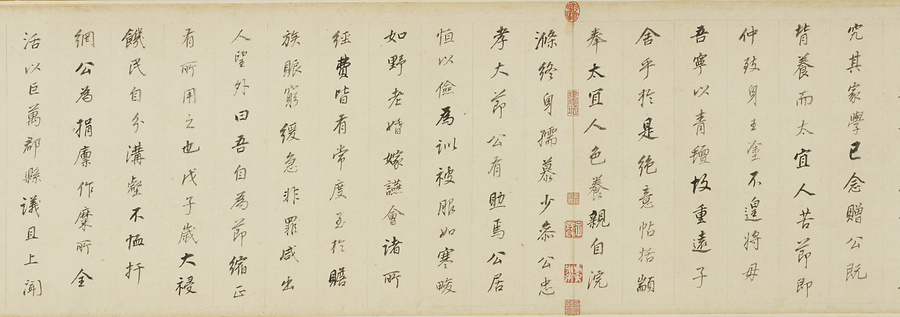 究其家學已念贈公既
背養而太宜人苦節即
仲致身王塗不遑將母
吾寧以青氊故重遠子
舍乎於是絕意帖括顓
奉太宜人色養親自浣
滌終身孺慕少參公忠
孝大節公有助焉公居
恒以儉為訓被服如寒畯
如野老婚嫁讌會諸所
經費皆有常度至於贍
族賑窮緩急非罪咸出
人望外曰吾自為節縮正
有所用之也戊子歲大祲
饑民自分溝壑不恤扞
網公為捐廩作糜所全
活以巨萬郡縣議且上聞